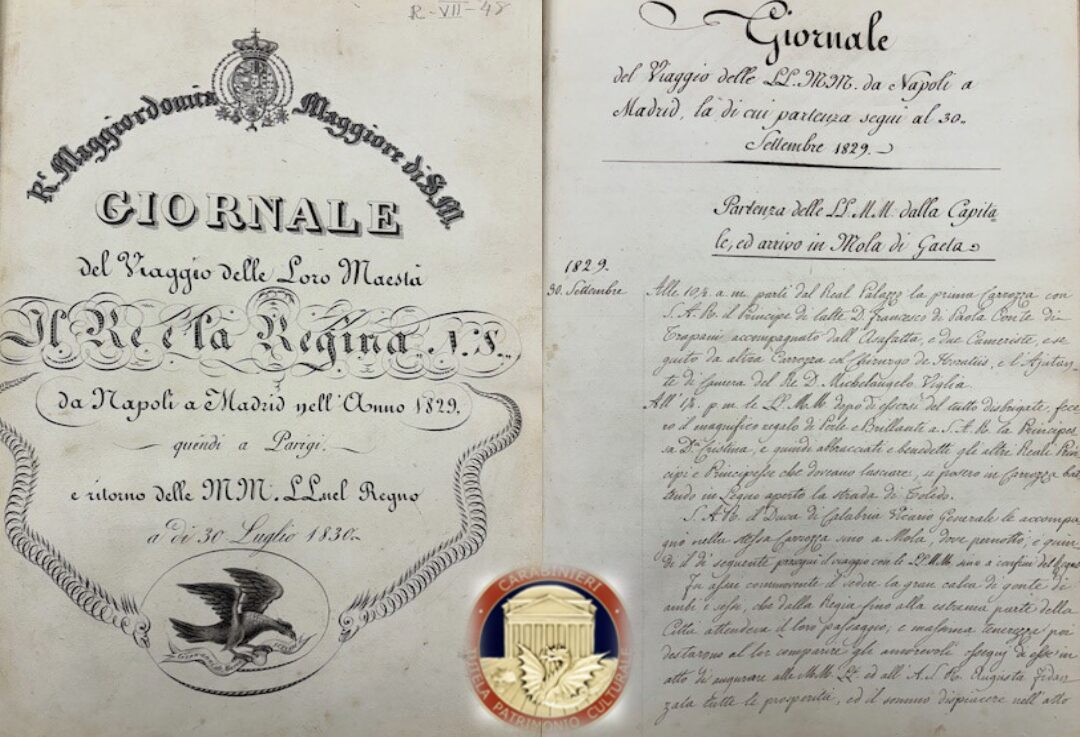 R-VII-48
R.l Maggiordomia Maggiore di S.M.
GIORNALE
del Viaggio delle Loro Maestà
Il Re e la Regina N.S.
da Napoli a Madrid nell'Anno 1829.
quindi a Parigi.
e ritorno delle MM. LL. nel Regno
a dì 30 Luglio 1830.
Giornale
del Viaggio delle LL. MM. da Napoli a
Madrid, la di cui partenza seguì al 30.
Settembre 1829.
Partenza delle LL. MM. dalla Capita
le, ed arrivo in Mola di Gaeta
1829.
30. Settembre
Alle 10¼ a m. partì dal Real Palazzo la prima Carrozza con
S. A. R. il Principe di latte D. Francesco di Paola Conte di
Trapani accompagnato dall'Asafatta, e due Cameriste, e se
guito da altra Carrozza col Chirurgo de Horatiis, e l'Ajutan
te di Camera del Re D. Michelangelo Viglia.
All' p. m. le LL. MM. dopo di essersi del tutto disbrigate, fece
ro il magnifico regalo di Perle e Brillante a S. A. R. la Principes
sa D.a Cristina, e quindi abbracciati e benedetti gli altri Reali Prin
cipi e Principesse che doveano lasciare, si posero in Carrozza bat
tendo in Legno aperto la strada di Toledo.
S. A. R. il Duca di Calabria Vicario Generale le accompa
gnò nella stessa Carrozza sino a Mola, dove pernottò; e quin
di il dì seguente proseguì il viaggio con le LL. MM. sino a' confini del Regno
Fu assai commovente il vedere la gran calca di gente di
ambi i sessi, che dalla Regia fino alla estrema parte della
Città attendeva il loro passaggio; e massima tenerezza poi
destarono al lor comparire gli amorevoli ossequj di esse in
atto di augurare alle MM. LL. ed all' A. S. R. Augusta Fidan
zata tutte le prosperità, ed il sommo dispiacere nell'atto
CARABINIERI
TUTELA PATRIMONIO CULTURALE